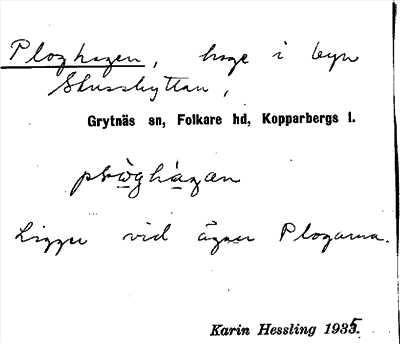 Ploghagen, hage i byn
Shusshyttan,
Grytnäs sn, Folkare hd, Kopparbergs l.
Ligger vid ägner Plogarna.
Karin Hessling 1935.